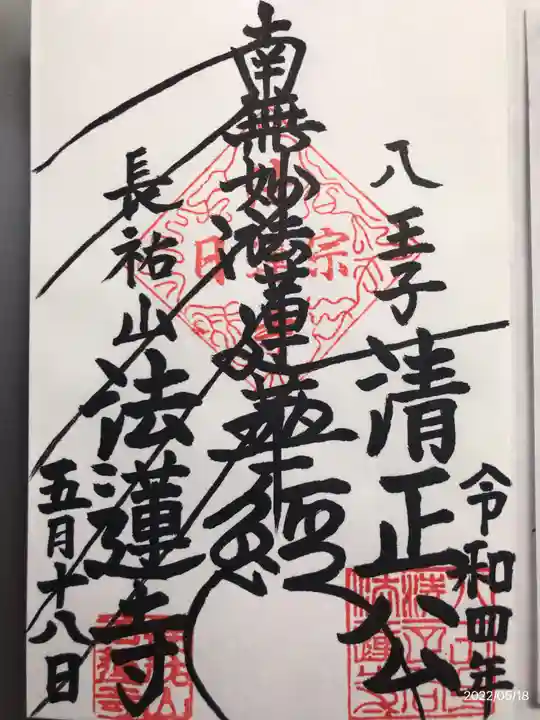 八王子
清正公
令和四年
南無妙法蓮華経
長祐山
法蓮寺
五月十八日
2022/05/18